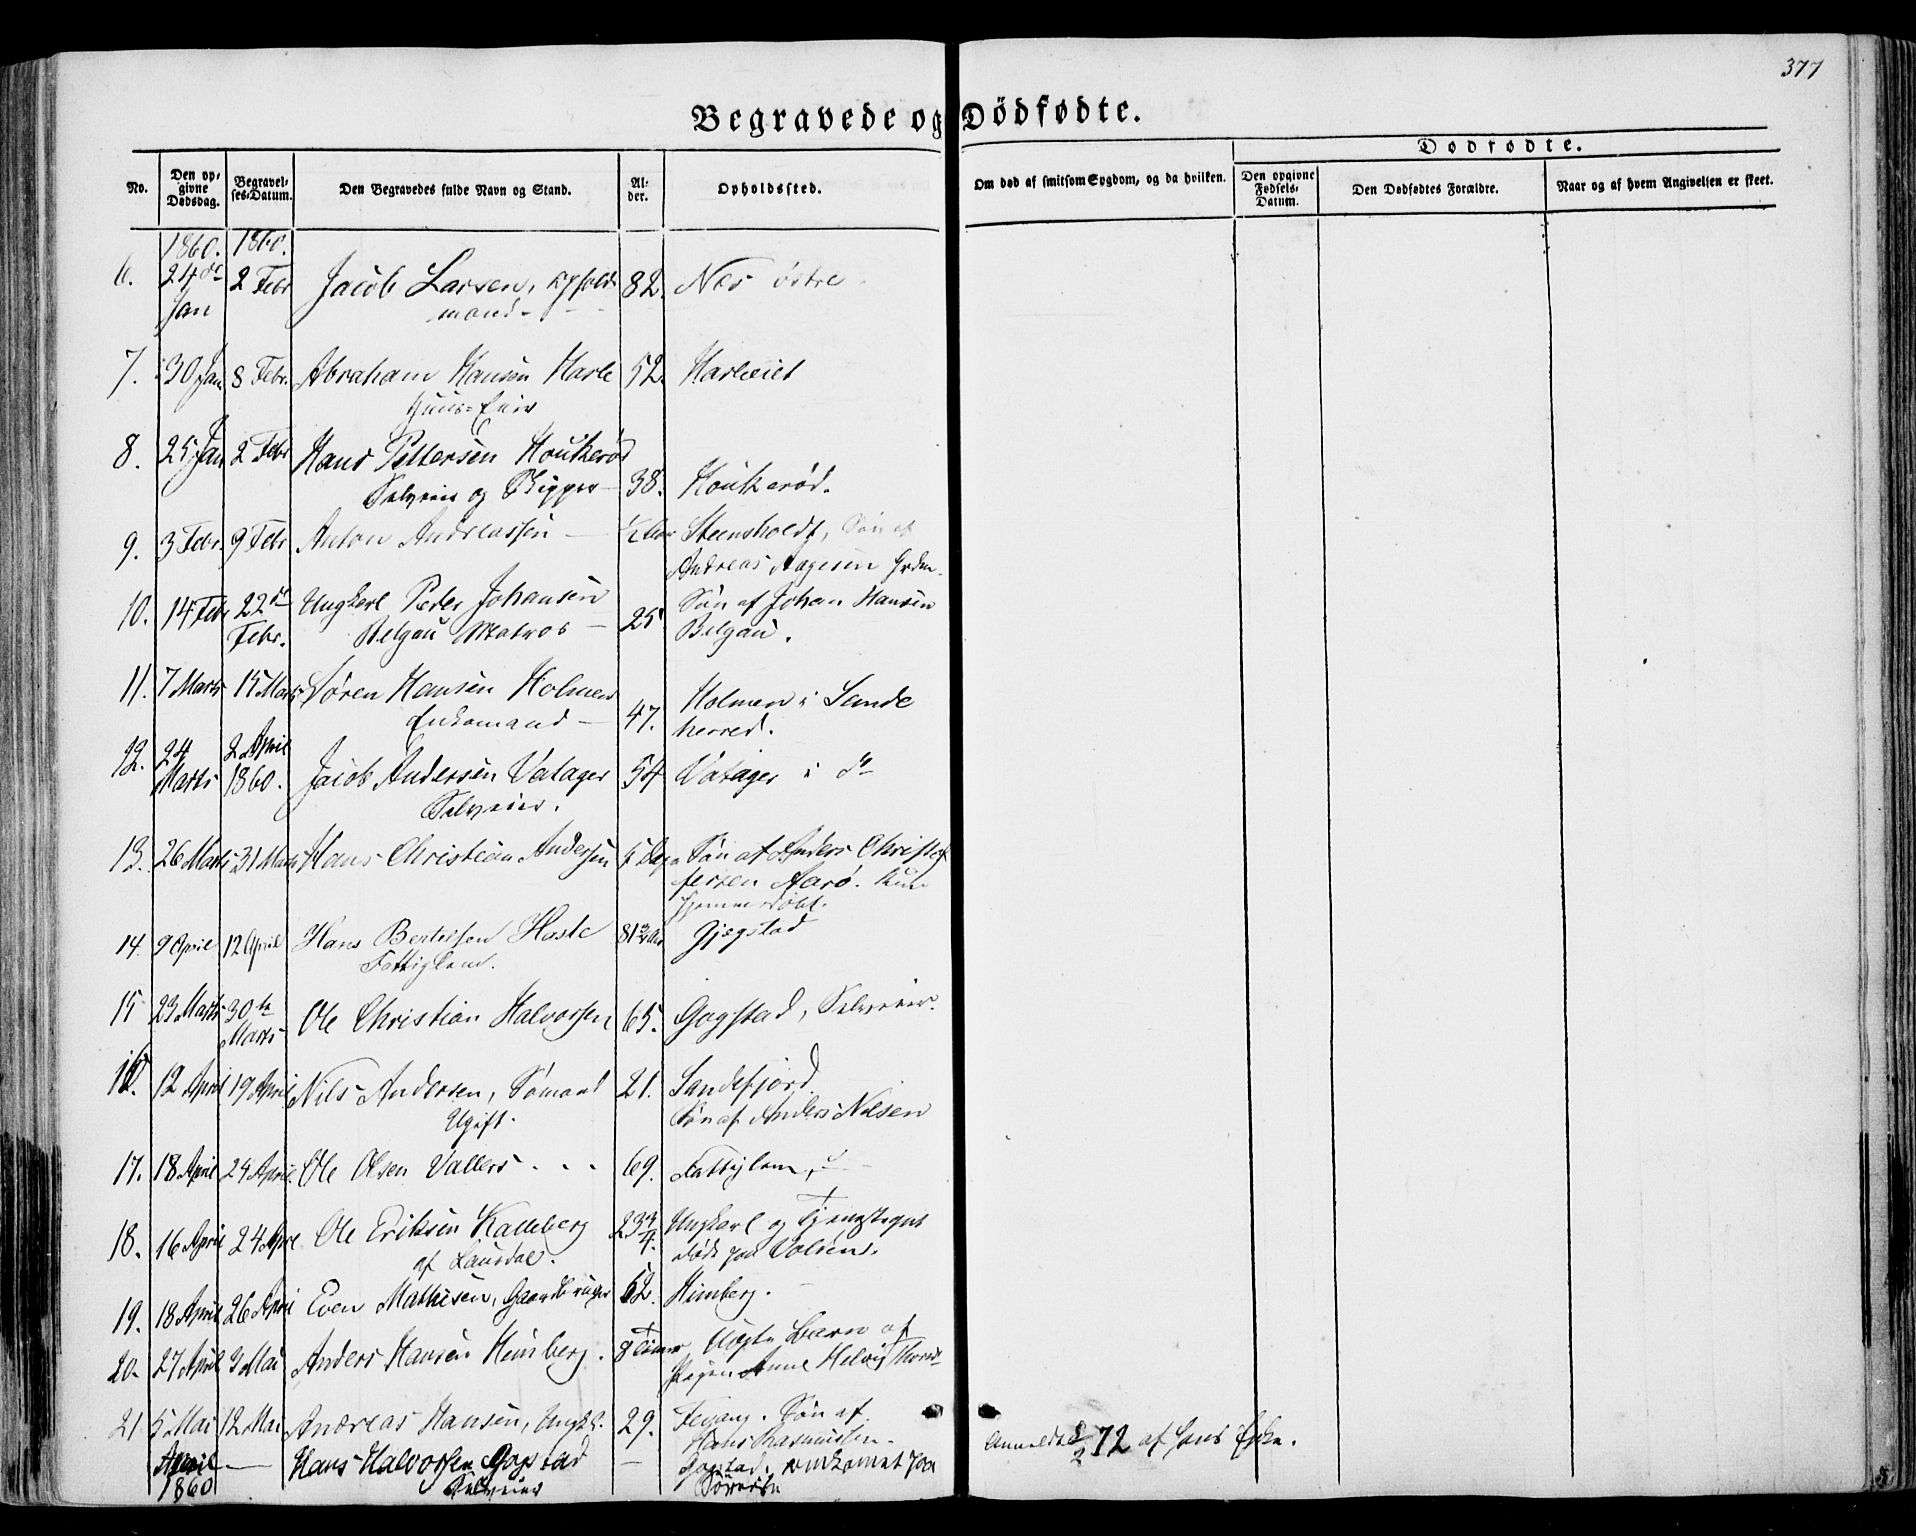 377
Begravede og Dödfødte.
Dødfødte.
No.
Den opgivne Dødsdag.
Begravelses-Datum.
Den Begravedes fulde Navn og Stand.
Alder.
Opholdssted.
Om død af smitsom Sygdom, og da hvilken.
Den opgivne Fødsels-Datum.
Den Dødfødtes Forældre.
Naar og af hvem Angivelsen er skeet.
1860. 1860.
6. 24de Jan 2 Febr Jacob Larsen, 82. Nes östre
mand
7. 30 Jan 8 Febr. Abraham Hansen Harle 52. Harleeiet
Huus-Eier
8. 25 Jan 2 Febr Hans Pettersen Houkerød
Selveier og Skipper 38. Houkerød.
9. 3 Febr. 9 Febr Anton Andreassen ½ Aar Steensholdt, Søn af
Andreas Aagesen
10. 14 Febr 22de Febr. Ungkarl Peder Johansen Søn af Johan Hansen
Belgau Matros 25 Belgau.
11. 7 Marts 15 Marts Sören Hansen Holmen Holmen i Sande
Enkemand 47. herred.
12. 24 Marts 2 April 1860. Jacob Andersen Vatager 54 Vatager i do
Selveier.
13. 26 Marts 31 Marts Hans Christian Andersen 5 Dage Søn af Anders Christof
fersen Aarö. Kun
hjemmedöbt.
14. 9 April 12 April Hans Bertelsen Hasle 81¾ Aar Gjegstad
Fattiglem.
15 23 Marts 30te Marts Ole Christian Halvorsen 65. Gogstad, Selveier.
16. 12 April 19 April Nils Andersen, Sömand 21. Sandefjord.
Ugift. Søn af Anders Nilsen
17. 18 April 24 April. Ole Olsen Vallers 69. Fattiglem,
18. 16 April 24 April Ole Eriksen Kalleberg 23¾. Ungkarl og
af Lausdal. døde paa
19. 18 April 26 April Even Mathisen, Gaardbruger 52. Himberg.
20. 27 April 3 Mai Anders Hansen Himberg. 8 Timer Uægte Barn af
Pigen Anne Helvig
21 5 Mai 12 Mai Andreas Hansen, Ungk. 29. Fevang. Søn af
Hans Rasmussen.
Anmeldt 8/2 72 af hans Enke.
April 1860 — Hans Halvorsen Gogstad — Gogstad. omkommet paa
Selveier Söreise